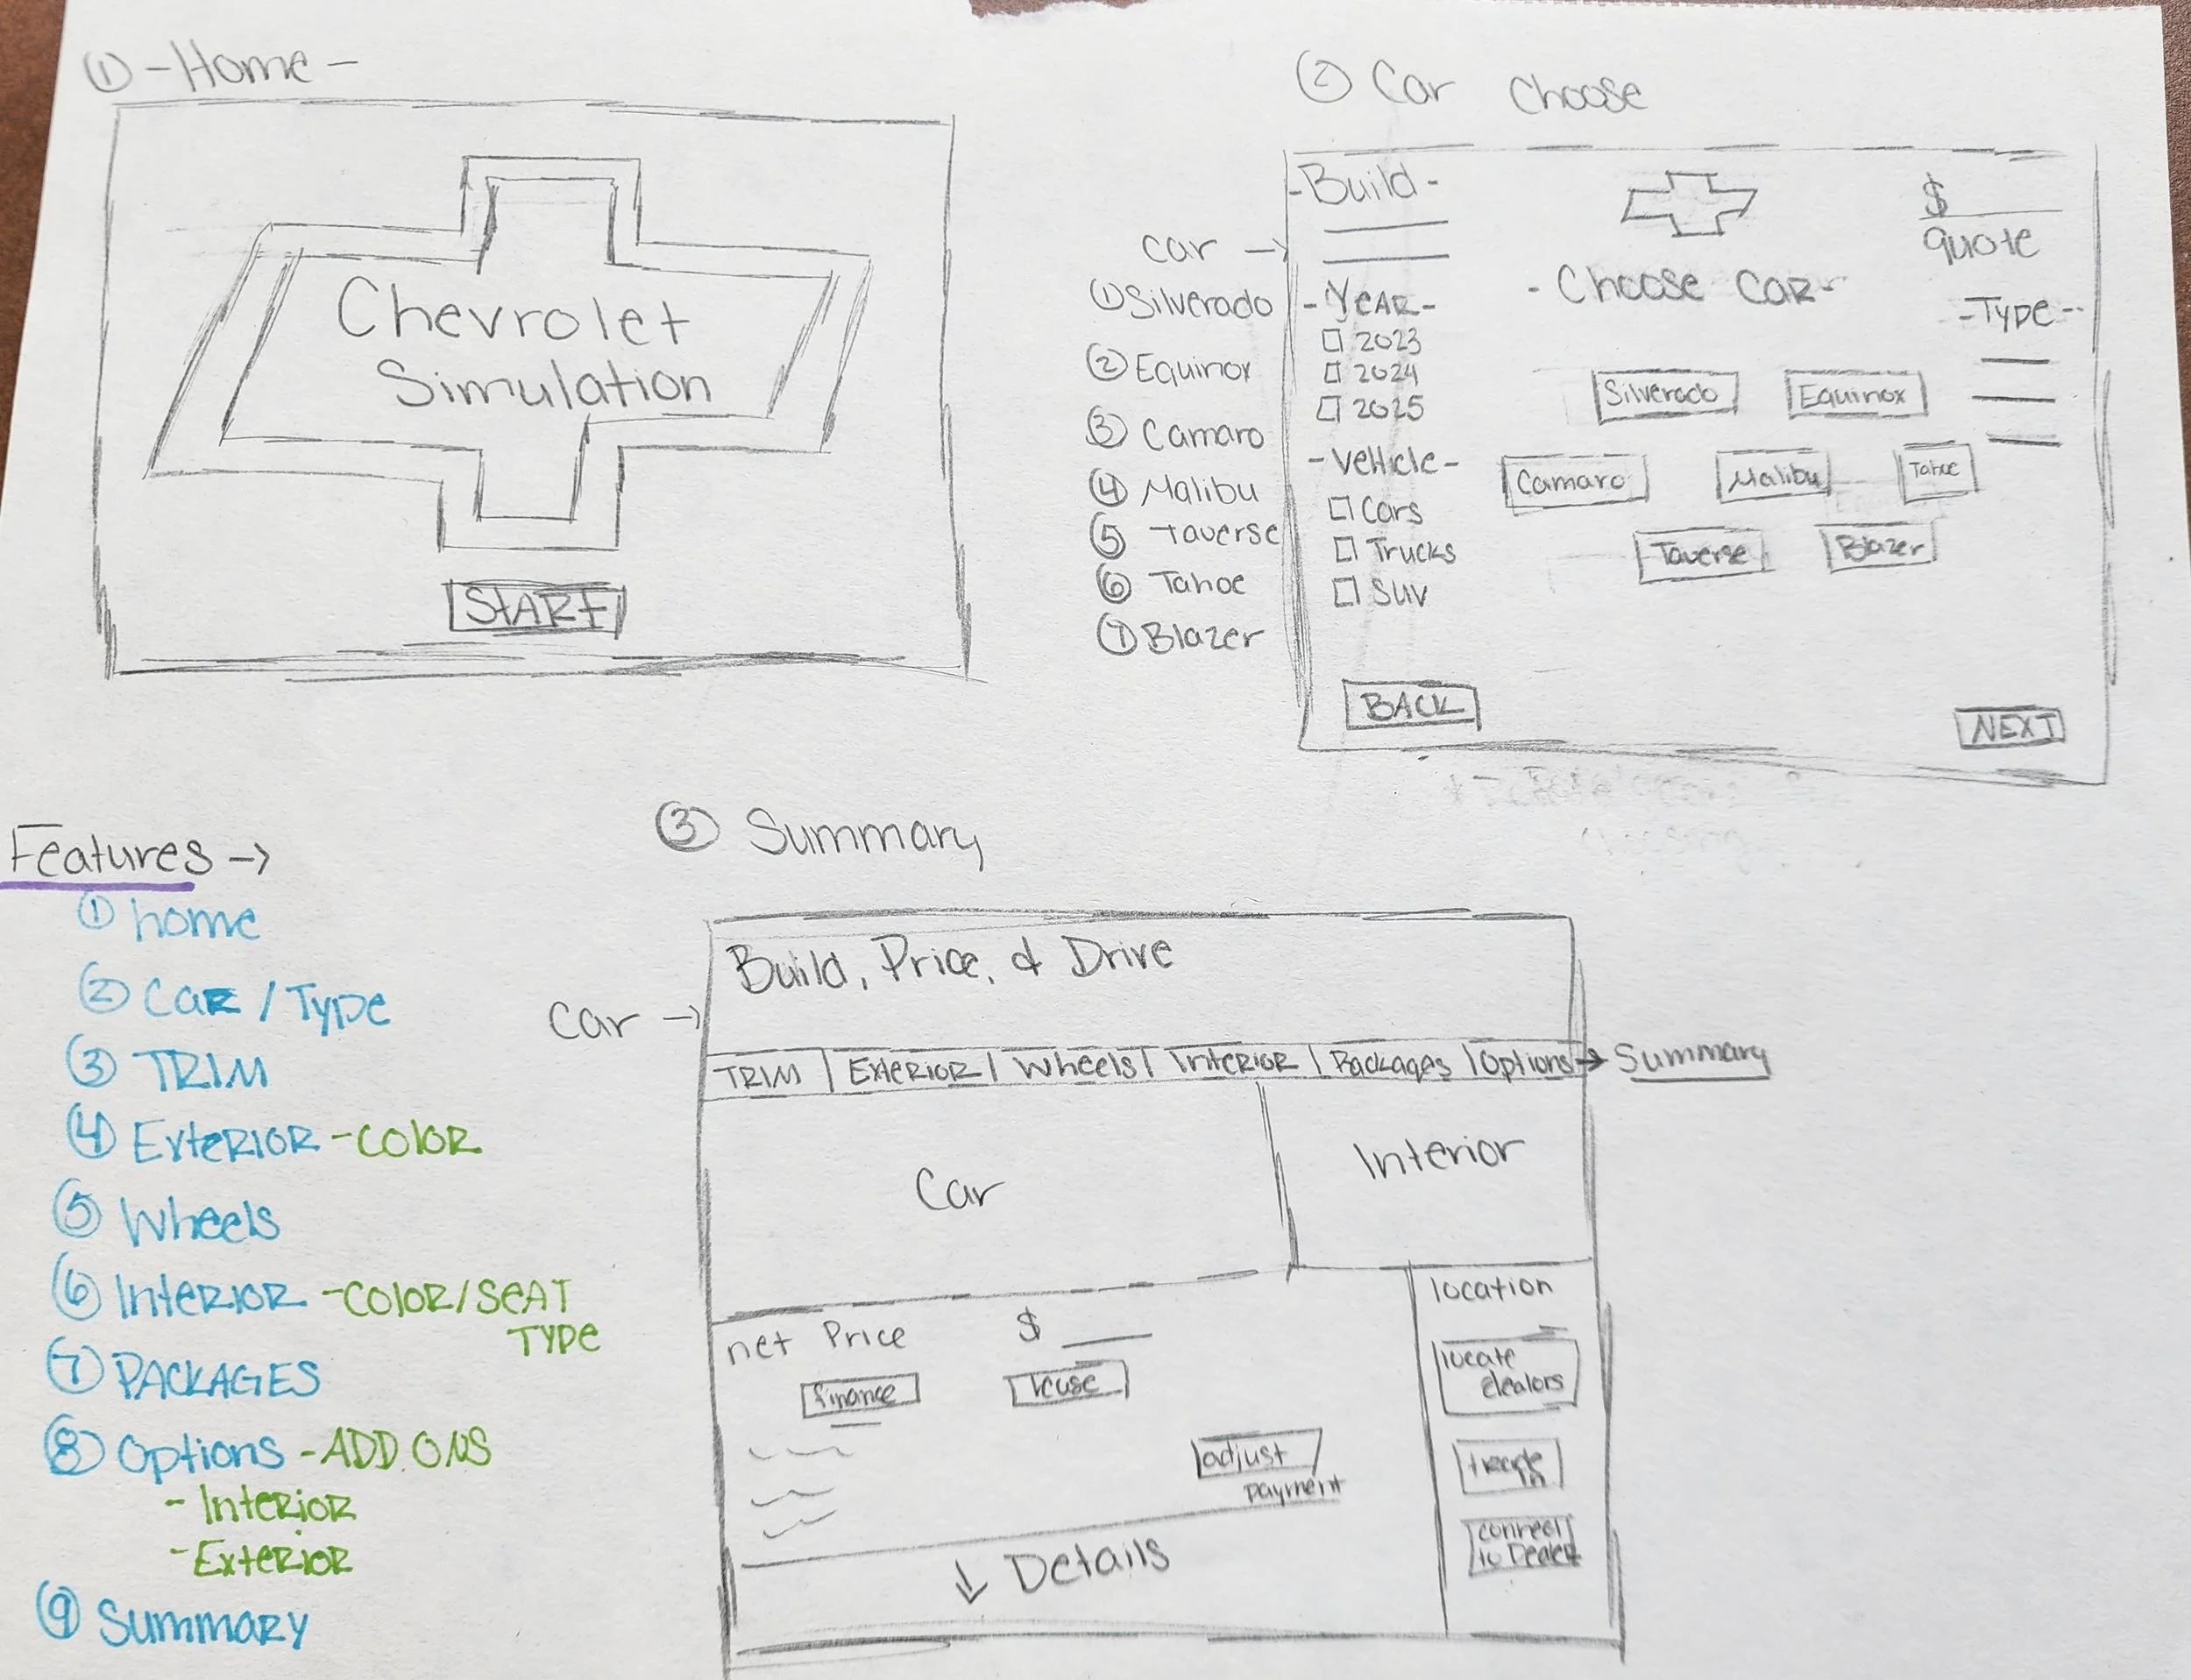 ① -Home-
Chevrolet
Simulation
START
② Car Choose
car →
① Silverado
② Equinox
③ Camaro
④ Malibu
⑤ Taverse
⑥ Tahoe
⑦ Blazer
-Build-
$
quote
-Choose Car-
-Type-
-YEAR-
□ 2023
□ 2024
□ 2025
-Vehicle-
□ Cars
□ Trucks
□ SUV
Silverado Equinox
Camaro Malibu Tahoe
Taverse Blazer
BACK
NEXT
Features →
① home
② CAR / TYPE
③ TRIM
④ EXTERIOR - COLOR
⑤ Wheels
⑥ INTERIOR - COLOR/SEAT
TYPE
⑦ PACKAGES
⑧ Options - ADD ONS
- INTERIOR
- EXTERIOR
⑨ SUMMARY
③ Summary
Car →
Build, Price, & Drive
TRIM | EXTERIOR | Wheels | INTERIOR | Packages | Options → Summary
Car
Interior
net Price $
finance
lease
adjust
payment
↓ Details
location
locate
dealors
trade
in
connect
to Dealer